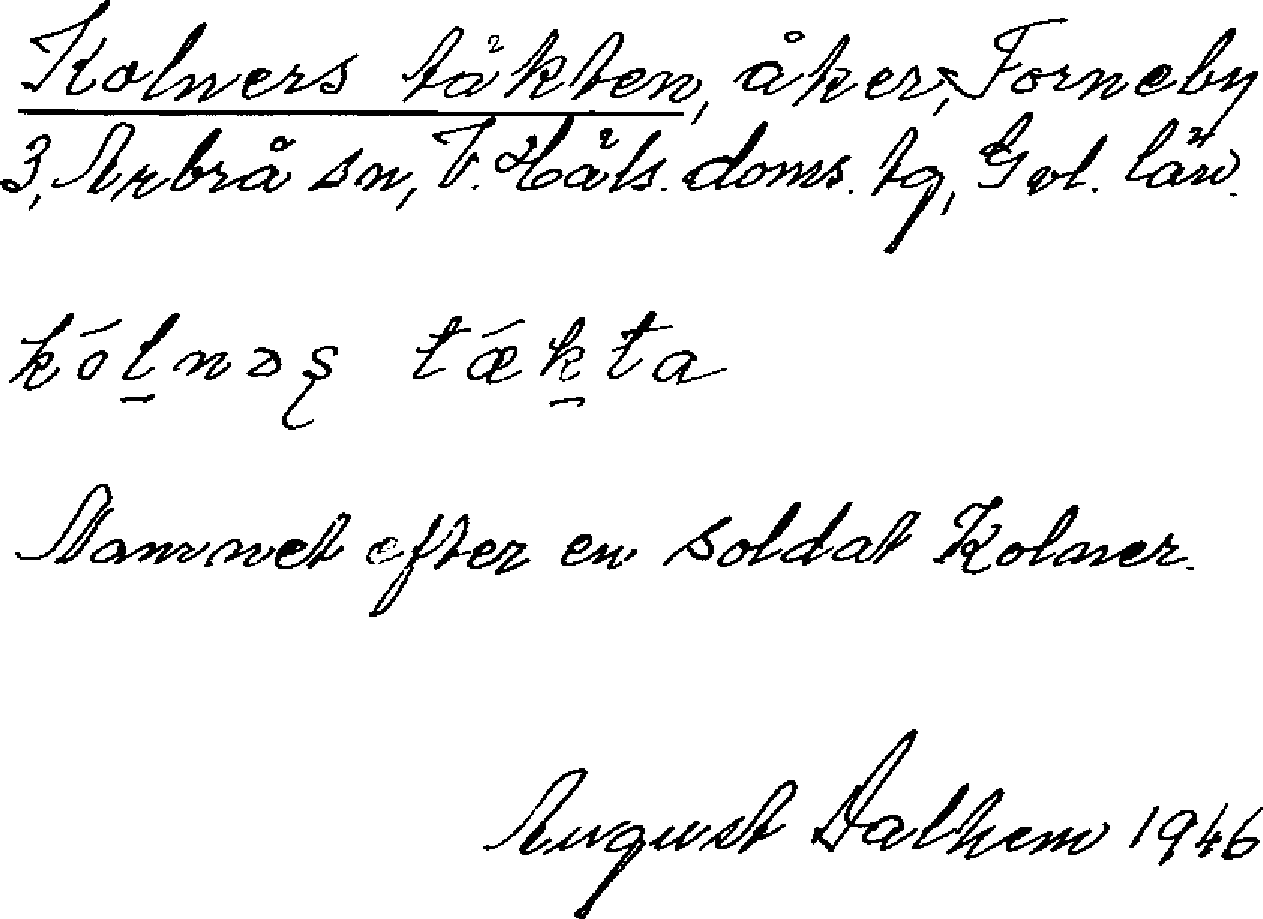 Kolners täkten, åker, Forneby
3, Arbrå sn, V. Häls. doms. tg, Gvl. län.
kólnəʂ tǽkta
Namnet efter en soldat Kolner.
August Dalhem 1946